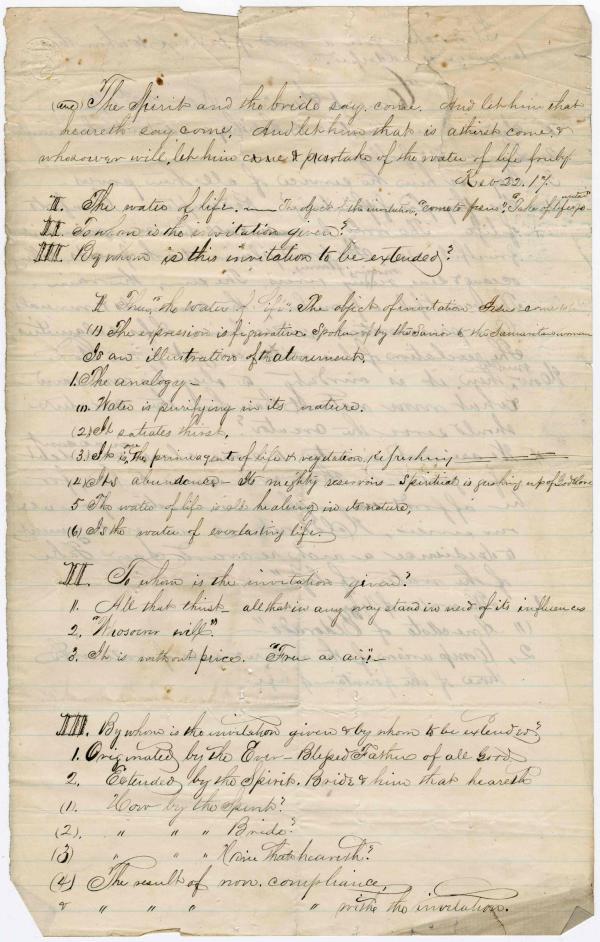 (and) The Spirit and the bride say come. And let him that
heareth say come. And let him that is athirst come, &
whosoever will, let him come & partake of the water of life freely
Rev 22.17.
I. The water of life. — The object of the invitation, "come to Jesus". "Take of life
II. To whom is the invitation given?
III. By whom is this invitation to be extended?
I. "the water of life". The object of invitation
(1) The expression is figurative. Spoken of by the Savior to the Samaritan woman
Is an illustration of the atonement.
1. The analogy —
(1). Water is purifying in its nature.
(2) It satiates thirst.
(3.) It is one the prime agents of life & vegetation, refreshing
(4) Its abundance — Its mighty reservoirs — Spiritual is gushing up of God's love
5 The water of life is also healing in its nature,
(6) Is the water of everlasting life.
II. To whom is the invitation given?
1. All that thirst — all that in any way stand in need of its influences
2. "Whosoever will".
3. It is without price. "Free as air". —
III. By whom is the invitation given & by whom to be extended?
1. Originated by the Ever-Blessed Father of all Good,
2. Extended by the Spirit, Bride & him that heareth
(1). How by the Spirit?
(2). " " " Bride?
(3) " " " Him that heareth?
(4) The result of non. compliance,
& " " " " with the invitation.